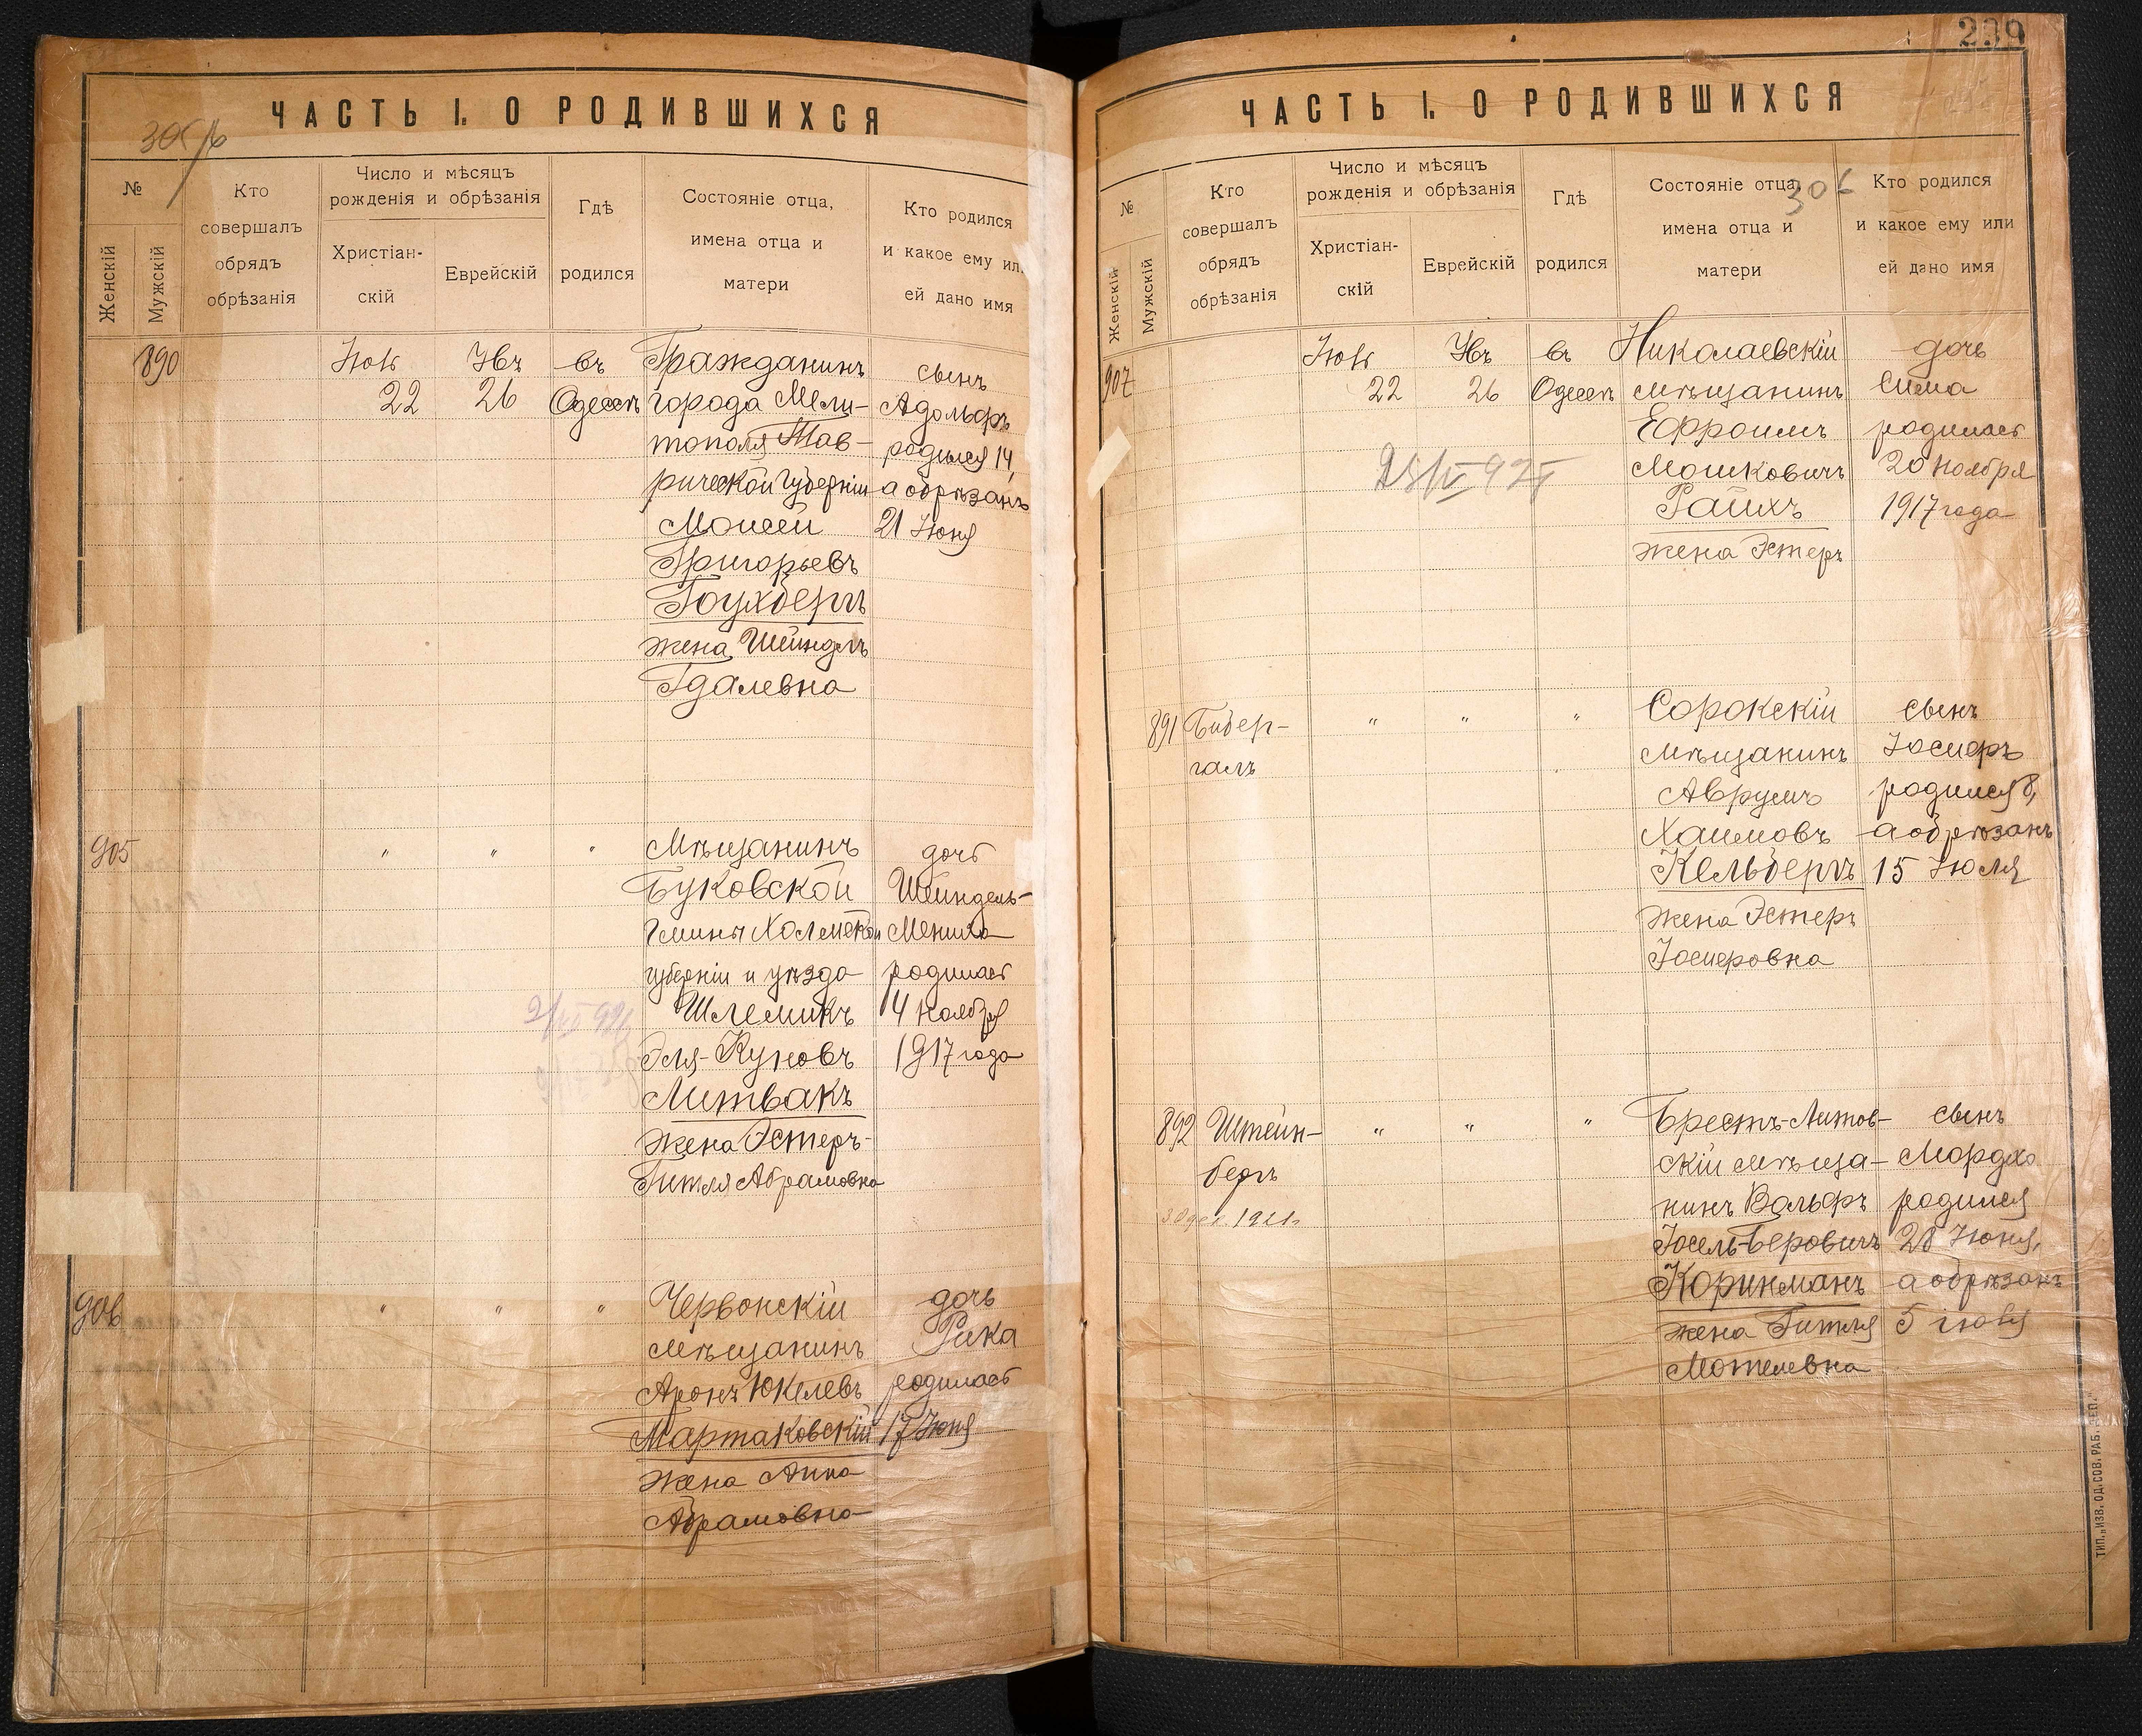 ЧАСТЬ I. О РОДИВШИХСЯ
№
Женскій
Мужскій
Кто
совершалъ
обрядъ
обрѣзанія
Число и мѣсяцъ
рожденія и обрѣзанія
Христіан-
скій
Еврейскій
Гдѣ
родился
Состояніе отца,
имена отца и
матери
Кто родился
и какое ему ил
ей дано имя
890
22
26
въ
Одессѣ
Гражданинъ
города Мели-
тополя Тав-
рической Губерніи
Моисей
Григорьевъ
Гоухбергъ
жена Шейндль
Гдалевна
сынъ
Адольфъ
родился 14,
а обрѣзанъ
21 Іюня
905
"
"
"
Мѣщанинъ
Буковской
Гмины Холмской
губерніи и уѣзда
Шлемикъ
Эля-Куновъ
Литвакъ
жена Эстеръ-
Гитля Абрамовна
дочь
Шейндель-
Мениха
родилась
14 ноября
1917 года
906
"
"
"
Червонскій
мѣщанинъ
Аронъ Юкелевъ
Мартаковскій
жена Анна
Абрамовна
дочь
Рика
родилась
17 Іюня
239
ЧАСТЬ I. О РОДИВШИХСЯ
306
№
Женскій
Мужскій
Кто
совершалъ
обрядъ
обрѣзанія
Число и мѣсяцъ
рожденія и обрѣзанія
Христіан-
скій
Еврейскій
Гдѣ
родился
Состояніе отца,
имена отца и
матери
Кто родился
и какое ему или
ей дано имя
907
22
26
въ
Одессѣ
Николаевскій
мѣщанинъ
Ефроимъ
Мошковичъ
Райхъ
жена Эстеръ
дочь
Сима
родилась
20 ноября
1917 года
891
Бибер-
галъ
"
"
"
Сорокскій
мѣщанинъ
Аврумъ
Хаимовъ
Кельбергъ
жена Эстеръ
Іосифовна
сынъ
Іосифъ
родился 8,
а обрѣзанъ
15 Іюля
892
Штейн-
бергъ
30 дек. 1921г
"
"
"
Брестъ-Литов-
скій мѣща-
нинъ Вольфъ
Іосель-Беровичъ
Коринманъ
жена Гитля
Мотелевна
сынъ
Мордко
родился
28 Іюня,
а обрѣзанъ
5 іюля